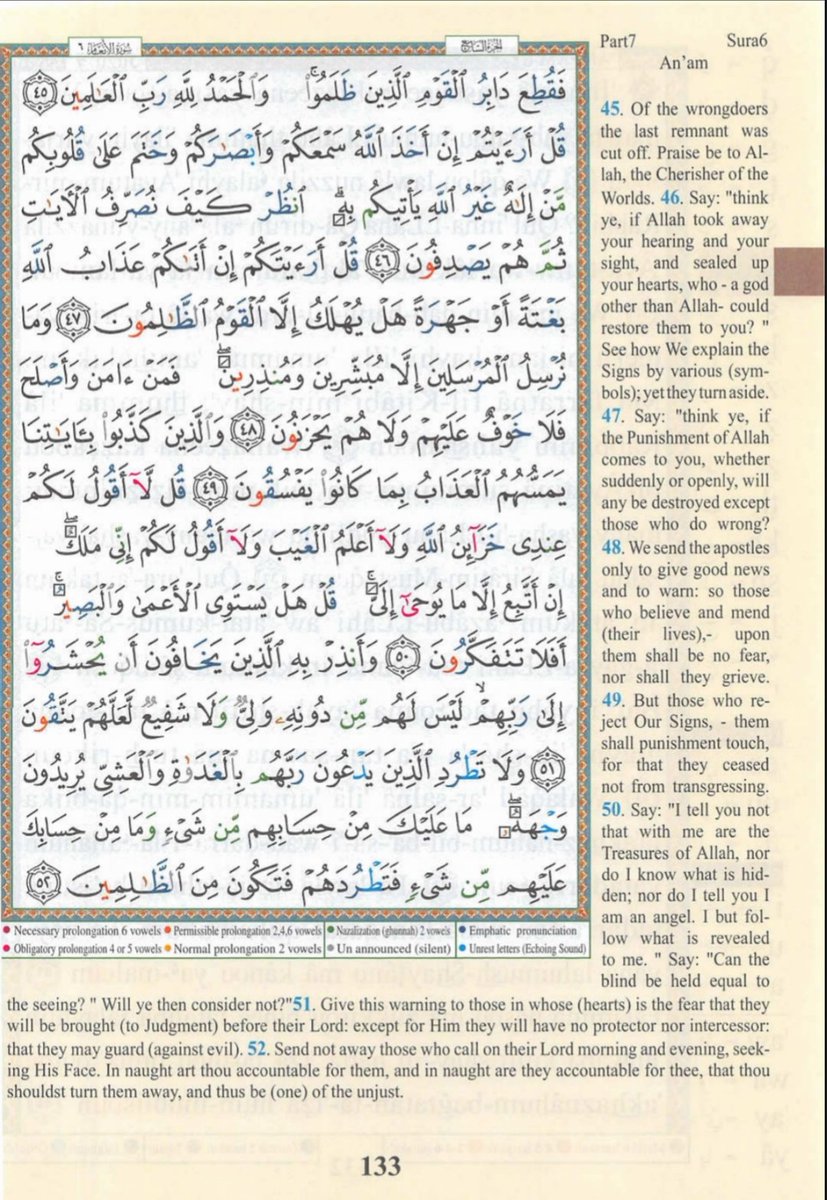 سورة الأنعام ٦
الجزء السابع
فَقُطِعَ دَابِرُ ٱلْقَوْمِ ٱلَّذِينَ ظَلَمُوا۟ ۚ وَٱلْحَمْدُ لِلَّهِ رَبِّ ٱلْعَـٰلَمِينَ ٤٥
قُلْ أَرَءَيْتُمْ إِنْ أَخَذَ ٱللَّهُ سَمْعَكُمْ وَأَبْصَـٰرَكُمْ وَخَتَمَ عَلَىٰ قُلُوبِكُم
مَّنْ إِلَـٰهٌ غَيْرُ ٱللَّهِ يَأْتِيكُم بِهِ ۗ ٱنظُرْ كَيْفَ نُصَرِّفُ ٱلْـَٔايَـٰتِ
ثُمَّ هُمْ يَصْدِفُونَ ٤٦ قُلْ أَرَءَيْتَكُمْ إِنْ أَتَىٰكُمْ عَذَابُ ٱللَّهِ
بَغْتَةً أَوْ جَهْرَةً هَلْ يُهْلَكُ إِلَّا ٱلْقَوْمُ ٱلظَّـٰلِمُونَ ٤٧ وَمَا
نُرْسِلُ ٱلْمُرْسَلِينَ إِلَّا مُبَشِّرِينَ وَمُنذِرِينَ ۖ فَمَنْ ءَامَنَ وَأَصْلَحَ
فَلَا خَوْفٌ عَلَيْهِمْ وَلَا هُمْ يَحْزَنُونَ ٤٨ وَٱلَّذِينَ كَذَّبُوا۟ بِـَٔايَـٰتِنَا
يَمَسُّهُمُ ٱلْعَذَابُ بِمَا كَانُوا۟ يَفْسُقُونَ ٤٩ قُل لَّآ أَقُولُ لَكُمْ
عِندِى خَزَآئِنُ ٱللَّهِ وَلَآ أَعْلَمُ ٱلْغَيْبَ وَلَآ أَقُولُ لَكُمْ إِنِّى مَلَكٌ ۖ
إِنْ أَتَّبِعُ إِلَّا مَا يُوحَىٰٓ إِلَىَّ ۚ قُلْ هَلْ يَسْتَوِى ٱلْأَعْمَىٰ وَٱلْبَصِيرُ ۚ
أَفَلَا تَتَفَكَّرُونَ ٥٠ وَأَنذِرْ بِهِ ٱلَّذِينَ يَخَافُونَ أَن يُحْشَرُوٓا۟
إِلَىٰ رَبِّهِمْ ۙ لَيْسَ لَهُم مِّن دُونِهِۦ وَلِىٌّ وَلَا شَفِيعٌ لَّعَلَّهُمْ يَتَّقُونَ
٥١ وَلَا تَطْرُدِ ٱلَّذِينَ يَدْعُونَ رَبَّهُم بِٱلْغَدَوٰةِ وَٱلْعَشِىِّ يُرِيدُونَ
وَجْهَهُۥ ۖ مَا عَلَيْكَ مِنْ حِسَابِهِم مِّن شَىْءٍ وَمَا مِنْ حِسَابِكَ
عَلَيْهِم مِّن شَىْءٍ فَتَطْرُدَهُمْ فَتَكُونَ مِنَ ٱلظَّـٰلِمِينَ ٥٢
Necessary prolongation 6 vowels Permissible prolongation 2,4,6 vowels Nazalization (ghunnah) 2 vowels Emphatic pronunciation
Obligatory prolongation 4 or 5 vowels Normal prolongation 2 vowels Un announced (silent) Unrest letters (Echoing Sound)
Part7 Sura6
An'am
45. Of the wrongdoers
the last remnant was
cut off. Praise be to Al-
lah, the Cherisher of the
Worlds. 46. Say: "think
ye, if Allah took away
your hearing and your
sight, and sealed up
your hearts, who - a god
other than Allah- could
restore them to you? "
See how We explain the
Signs by various (sym-
bols); yet they turn aside.
47. Say: "think ye, if
the Punishment of Allah
comes to you, whether
suddenly or openly, will
any be destroyed except
those who do wrong?
48. We send the apostles
only to give good news
and to warn: so those
who believe and mend
(their lives),- upon
them shall be no fear,
nor shall they grieve.
49. But those who re-
ject Our Signs, - them
shall punishment touch,
for that they ceased
not from transgressing.
50. Say: "I tell you not
that with me are the
Treasures of Allah, nor
do I know what is hid-
den; nor do I tell you I
am an angel. I but fol-
low what is revealed
to me. " Say: "Can the
blind be held equal to
the seeing? " Will ye then consider not?"51. Give this warning to those in whose (hearts) is the fear that they
will be brought (to Judgment) before their Lord: except for Him they will have no protector nor intercessor:
that they may guard (against evil). 52. Send not away those who call on their Lord morning and evening, seek-
ing His Face. In naught art thou accountable for them, and in naught are they accountable for thee, that thou
shouldst turn them away, and thus be (one) of the unjust.
133